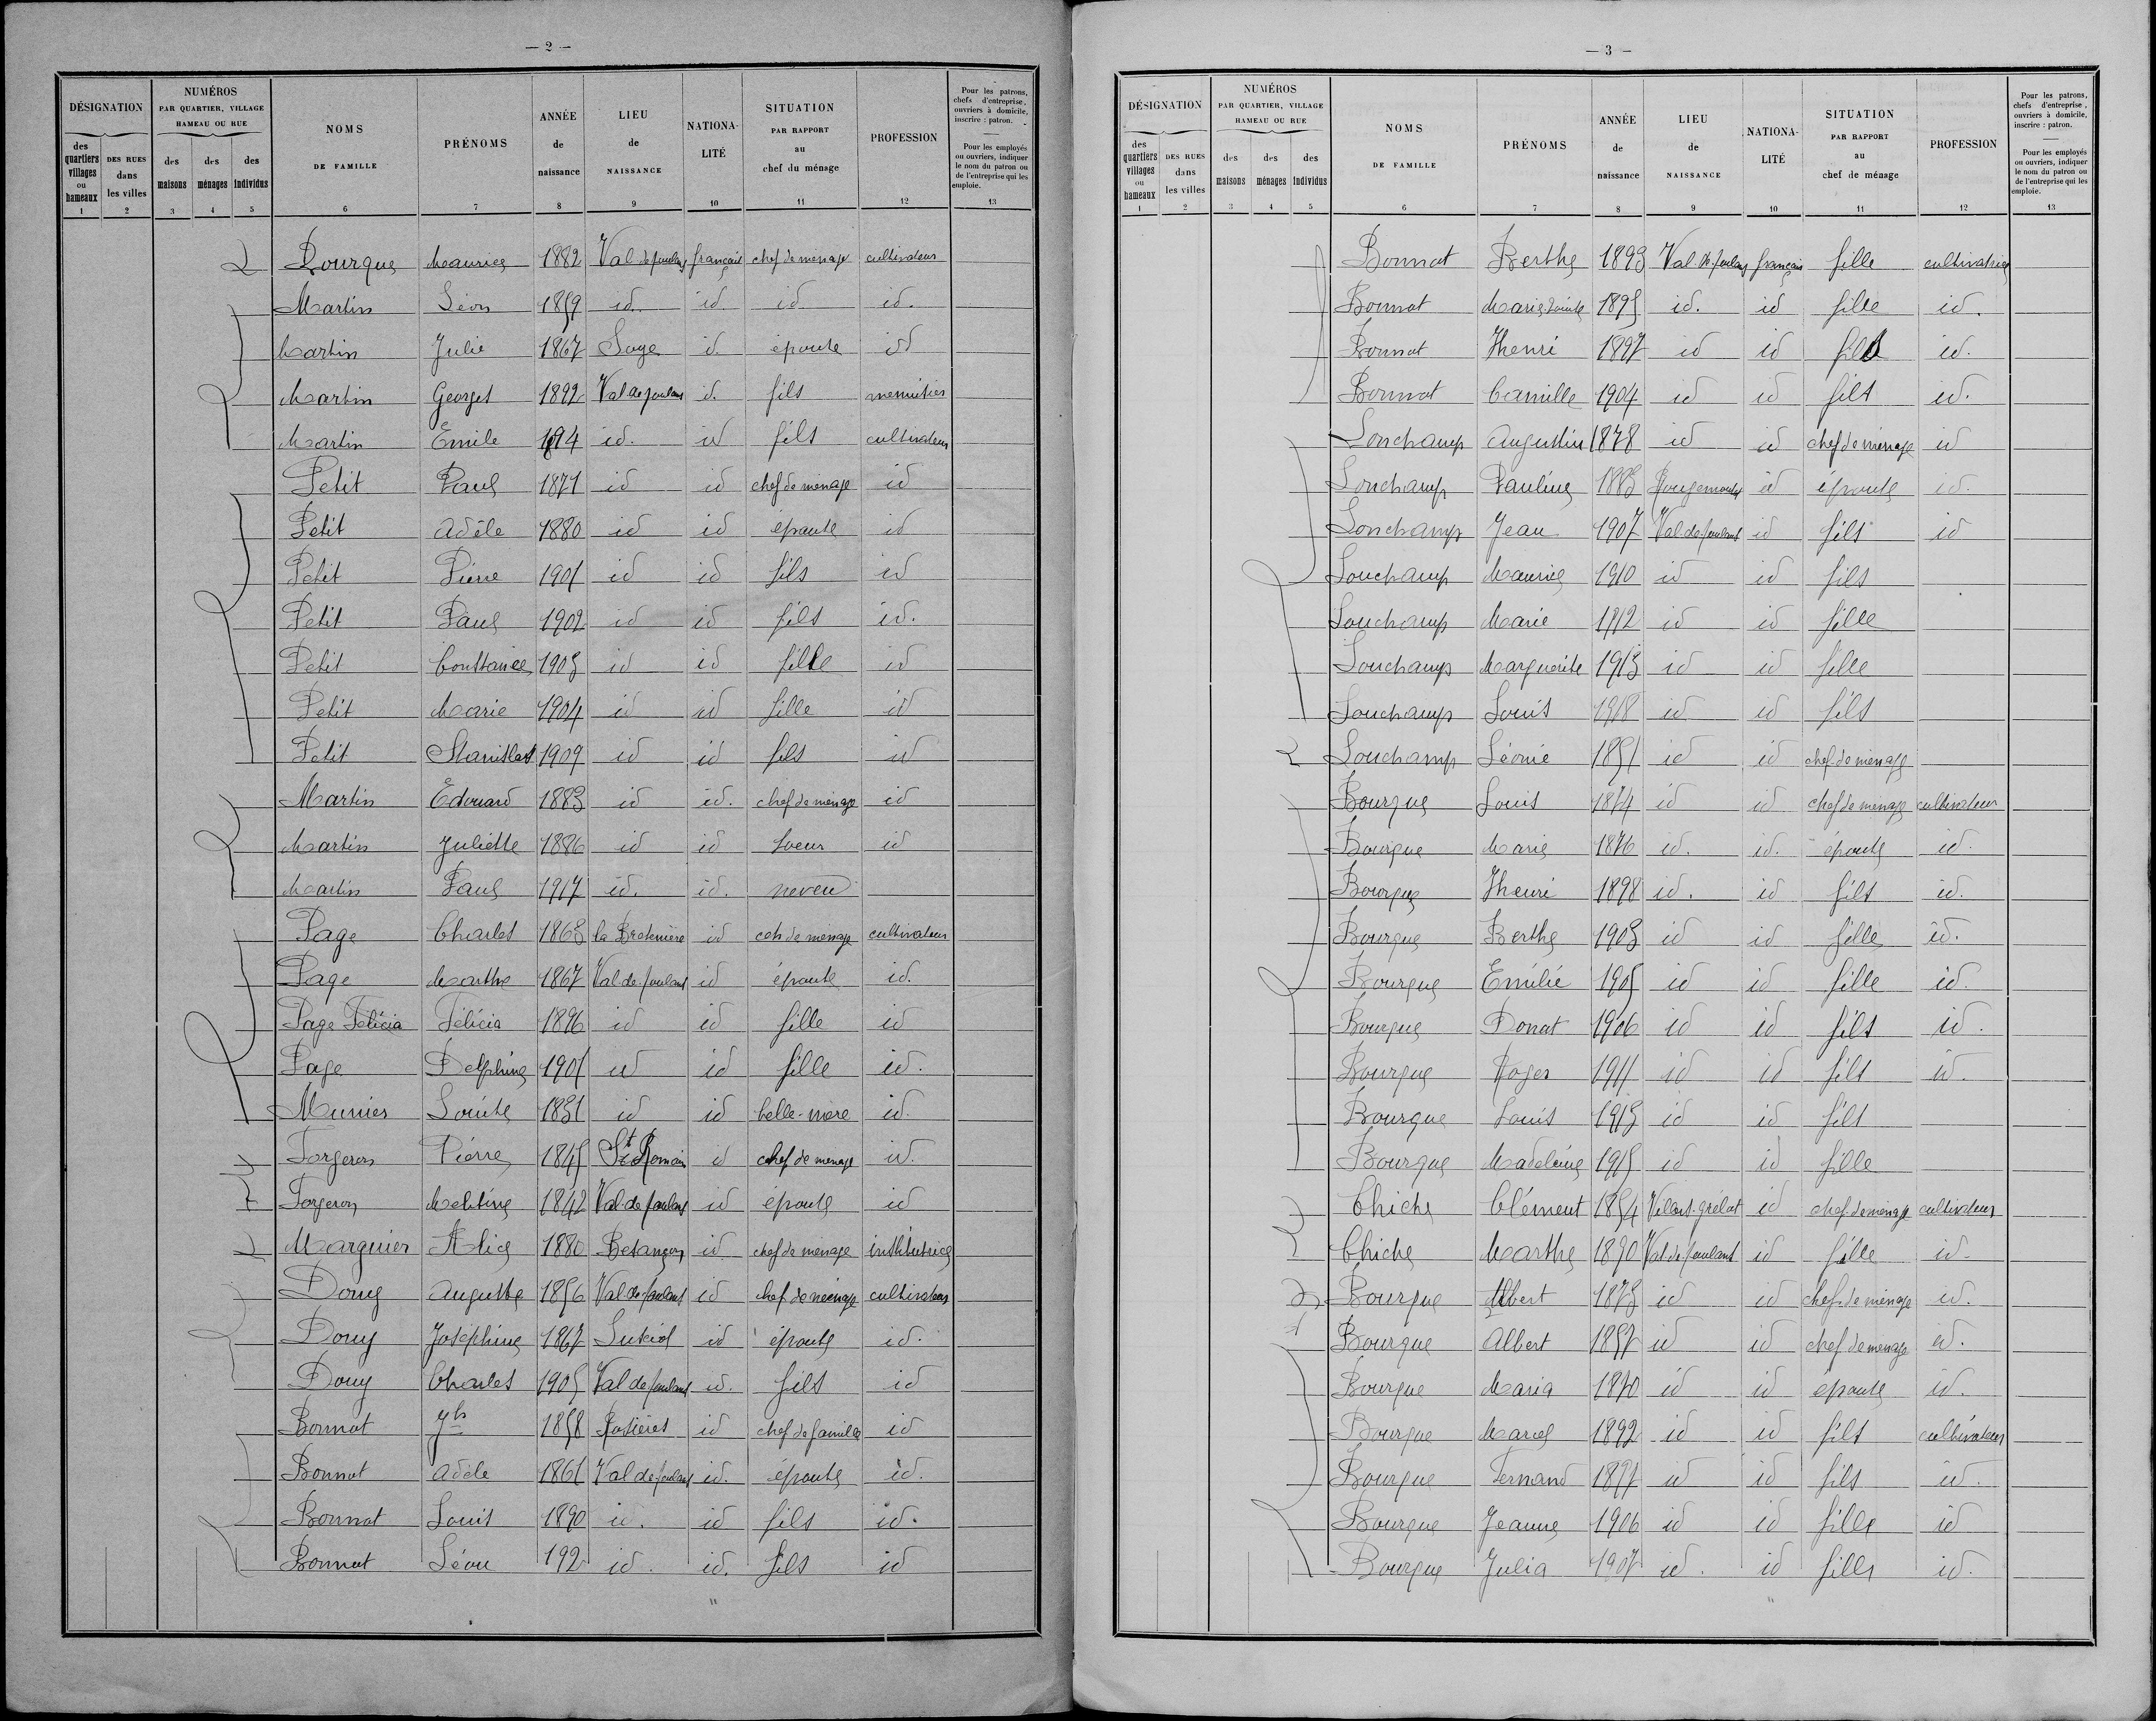 — 2 —
DÉSIGNATION
NUMÉROS
PAR QUARTIER, VILLAGE
HAMEAU OU RUE
des quartiers villages ou hameaux
DES RUES dans les villes
des maisons
des ménages
des individus
NOMS DE FAMILLE
PRÉNOMS
ANNÉE de naissance
LIEU de NAISSANCE
NATIONA-LITÉ
SITUATION PAR RAPPORT au chef du ménage
PROFESSION
Pour les patrons, chefs d'entreprise, ouvriers à domicile, inscrire : patron.
Pour les employés ou ouvriers, indiquer le nom du patron ou de l'entreprise qui les emploie.
1 2 3 4 5 6 7 8 9 10 11 12 13
Bourque Maurice 1882 Val de roulans français chef de ménage cultivateur
Martin Léon 1859 id. id. id id.
Martin Julie 1867 Saye id. épouse id
Martin Georges 1892 Val de roulans id. fils menuisier
Martin Emile 1894 id. id fils cultivateur
Petit Paul 1871 id id chef de ménage id
Petit Adèle 1880 id id épouse id
Petit Pierre 1901 id id fils id
Petit Paul 1902 id id fils id.
Petit Constance 1903 id id fille id
Petit Marie 1904 id id fille id
Petit Stanislas 1909 id id fils id
Martin Edouard 1883 id id. chef de ménage id
Martin Juliette 1886 id id soeur id
Martin Paul 1917 id. id. neveu
Page Charles 1863 la Bretenière id ceh de ménage cultivateur
Page Marthe 1867 Val de roulans id épouse id.
Page Félicia Félicia 1896 id id fille id
Page Delphine 1901 id id fille id.
Munier Louise 1831 id id belle-mère id.
Forgeron Pierre 1845 St Romain id chef de ménage id.
Forgeron Melitine 1842 Val de roulans id épouse id
Marguier Alice 1880 Besançon id chef de ménage institutrice
Douy Auguste 1856 Val de roulans id chef de ménage cultivateur
Douy Joséphine 1867 id épouse id.
Douy Charles 1905 Val de roulans id. fils id
Bonnat Jh 1858 Rosières id chef de famille id
Bonnat Adèle 1861 Val de roulans id. épouse id.
Bonnat Louis 1890 id. id fils id.
Bonnat Léon 192 id. id. fils id
"
— 3 —
DÉSIGNATION
NUMÉROS
PAR QUARTIER, VILLAGE
HAMEAU OU RUE
des quartiers villages ou hameaux
DES RUES dans les villes
des maisons
des ménages
des individus
NOMS DE FAMILLE
PRÉNOMS
ANNÉE de naissance
LIEU de NAISSANCE
NATIONA-LITÉ
SITUATION PAR RAPPORT au chef de ménage
PROFESSION
Pour les patrons, chefs d'entreprise, ouvriers à domicile, inscrire : patron.
Pour les employés ou ouvriers, indiquer le nom du patron ou de l'entreprise qui les emploie.
1 2 3 4 5 6 7 8 9 10 11 12 13
Bonnat Berthe 1893 Val de roulans français fille cultivatrice
Bonnat Marie Louise 1895 id. id fille id.
Bonnat Henri 1897 id id fils id.
Bonnat Camille 1904 id id fils id.
Louchamp Augustin 1878 id id chef de ménage id
Louchamp Pauline 1883 Rougemontot id épouse id.
Louchamp Jean 1907 Val de roulans id fils id
Louchamp Maurice 1910 id id fils
Louchamp Marie 1912 id id fille
Louchamp Marguerite 1913 id id fille
Louchamp Louis 1918 id id fils
Louchamp Léonie 1851 id id chef de ménage
Bourque Louis 1874 id id chef de ménage cultivateur
Bourque Marie 1876 id. id. épouse id.
Bourque Henri 1898 id. id fils id.
Bourque Berthe 1903 id id fille id.
Bourque Emélie 1905 id id fille id.
Bourque Donat 1906 id id fils id.
Bourque Roger 1911 id id fils id.
Bourque Louis 1913 id id fils
Bourque Madeleine 1915 id id fille
Chiche Clément 1854 Villers-grélot id chef de ménage cultivateur
Chiche Marthe 1890 Val de roulans id fille id.
Bourque Albert 1873 id id chef de ménage id.
Bourque Albert 1857 id id chef de ménage id.
Bourque Maria 1870 id id épouse id.
Bourque Marcel 1892 id id fils cultivateur
Bourque Fernand 1897 id id fils id.
Bourque Jeanne 1906 id id fille id
Bourque Julia 1907 id. id fille id.
"